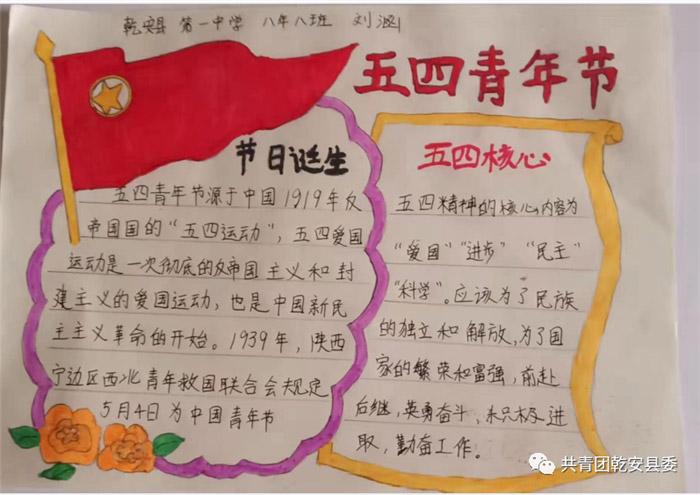 乾安县 第一中学 八年八班 刘涵
五四青年节
节日诞生
五四青年节源于中国1919年反
帝国国的“五四运动”,五四爱国
运动是一次彻底的反帝国主义和封
建主义的爱国运动,也是中国新民
主主义革命的开始。1939年,陕西
宁边区西北青年救国联合会规定
5月4日为中国青年节
五四核心
五四精神的核心内容为
“爱国”“进步” “民主”
“科学”。应该为了民族
的独立和解放,为了国
家的繁荣和富强,前赴
后继,英勇奋斗,积极进
取,勤奋工作。
共青团乾安县委